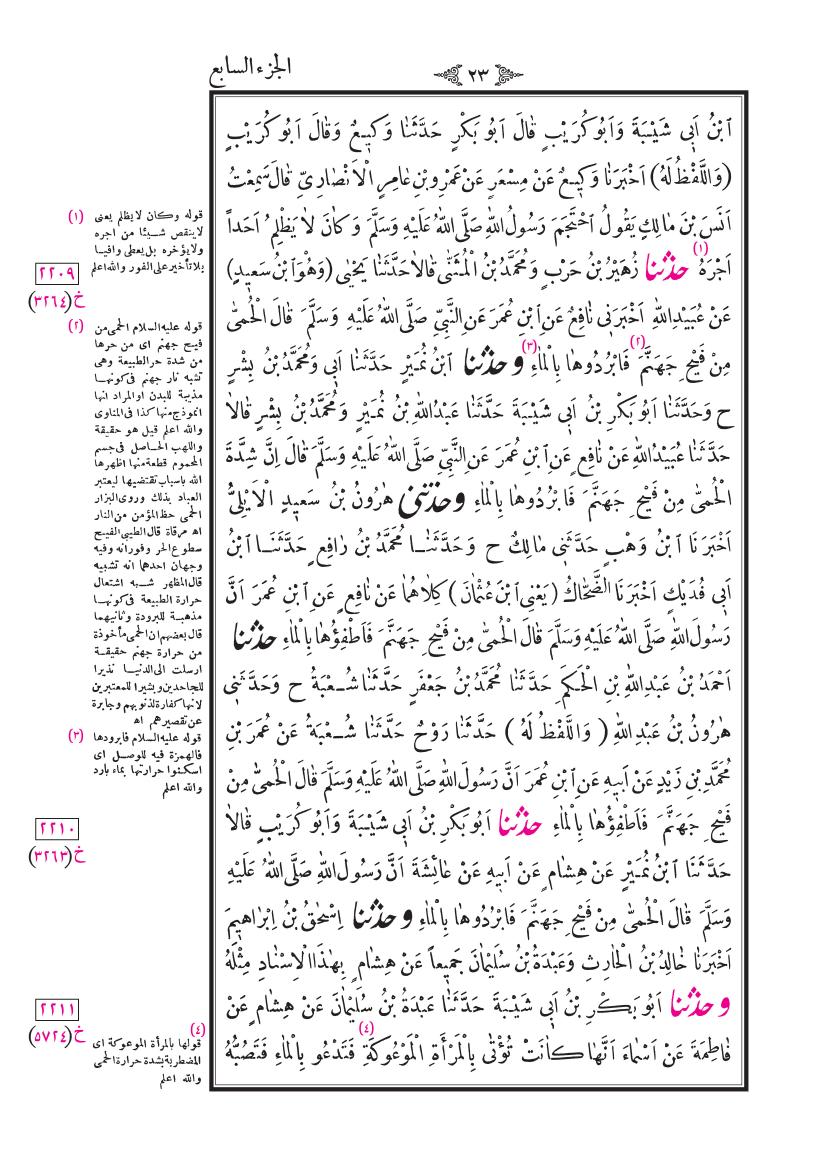 الجزء السابع
٢٣
اَبْنُ اَبِي شَيْبَةَ وَاَبُو كُرَيْبٍ قَالَ اَبُو بَكْرٍ حَدَّثَنَا وَكِيعٌ وَقَالَ اَبُو كُرَيْبٍ
(وَاللَّفْظُ لَهُ) اَخْبَرَنَا وَكِيعٌ عَنْ مِسْعَرٍ عَنْ عَمْرِو بْنِ عَامِرٍ الْاَنْصَارِيِّ قَالَ سَمِعْتُ
اَنَسَ بْنَ مَالِكٍ يَقُولُ احْتَجَمَ رَسُولُ اللهِ صَلَّى اللهُ عَلَيْهِ وَسَلَّمَ وَكَانَ لَا يَظْلِمُ اَحَداً
اَجْرَهُ (١) حَدَّثَنَا زُهَيْرُ بْنُ حَرْبٍ وَمُحَمَّدُ بْنُ الْمُثَنَّى قَالَا حَدَّثَنَا يَحْيَى (وَهُوَ ابْنُ سَعِيدٍ)
عَنْ عُبَيْدِ اللهِ اَخْبَرَنِي نَافِعٌ عَنِ ابْنِ عُمَرَ عَنِ النَّبِيِّ صَلَّى اللهُ عَلَيْهِ وَسَلَّمَ قَالَ الْحُمَّى
مِنْ فَيْحِ جَهَنَّمَ (٢) فَابْرُدُوهَا بِالْمَاءِ (٣) وَحَدَّثَنَا ابْنُ نُمَيْرٍ حَدَّثَنَا اَبِي وَمُحَمَّدُ بْنُ بِشْرٍ
ح وَحَدَّثَنَا اَبُو بَكْرِ بْنُ اَبِي شَيْبَةَ حَدَّثَنَا عَبْدُ اللهِ بْنُ نُمَيْرٍ وَمُحَمَّدُ بْنُ بِشْرٍ قَالَا
حَدَّثَنَا عُبَيْدُ اللهِ عَنْ نَافِعٍ عَنِ ابْنِ عُمَرَ عَنِ النَّبِيِّ صَلَّى اللهُ عَلَيْهِ وَسَلَّمَ قَالَ اِنَّ شِدَّةَ
الْحُمَّى مِنْ فَيْحِ جَهَنَّمَ فَابْرُدُوهَا بِالْمَاءِ وَحَدَّثَنِي هٰرُونُ بْنُ سَعِيدٍ الْاَيْلِيُّ
اَخْبَرَنَا ابْنُ وَهْبٍ حَدَّثَنِي مَالِكٌ ح وَحَدَّثَنَا مُحَمَّدُ بْنُ رَافِعٍ حَدَّثَنَا ابْنُ
اَبِي فُدَيْكٍ اَخْبَرَنَا الضَّحَّاكُ (يَعْنِي ابْنَ عُثْمَانَ) كِلَاهُمَا عَنْ نَافِعٍ عَنِ ابْنِ عُمَرَ اَنَّ
رَسُولَ اللهِ صَلَّى اللهُ عَلَيْهِ وَسَلَّمَ قَالَ الْحُمَّى مِنْ فَيْحِ جَهَنَّمَ فَاَطْفِؤُهَا بِالْمَاءِ حَدَّثَنَا
اَحْمَدُ بْنُ عَبْدِ اللهِ بْنِ الْحَكَمِ حَدَّثَنَا مُحَمَّدُ بْنُ جَعْفَرٍ حَدَّثَنَا شُعْبَةُ ح وَحَدَّثَنِي
هٰرُونُ بْنُ عَبْدِ اللهِ (وَاللَّفْظُ لَهُ) حَدَّثَنَا رَوْحٌ حَدَّثَنَا شُعْبَةُ عَنْ عُمَرَ بْنِ
مُحَمَّدِ بْنِ زَيْدٍ عَنْ اَبِيهِ عَنِ ابْنِ عُمَرَ اَنَّ رَسُولَ اللهِ صَلَّى اللهُ عَلَيْهِ وَسَلَّمَ قَالَ الْحُمَّى مِنْ
فَيْحِ جَهَنَّمَ فَاَطْفِؤُهَا بِالْمَاءِ حَدَّثَنَا اَبُو بَكْرِ بْنُ اَبِي شَيْبَةَ وَاَبُو كُرَيْبٍ قَالَا
حَدَّثَنَا ابْنُ نُمَيْرٍ عَنْ هِشَامٍ عَنْ اَبِيهِ عَنْ عَائِشَةَ اَنَّ رَسُولَ اللهِ صَلَّى اللهُ عَلَيْهِ
وَسَلَّمَ قَالَ الْحُمَّى مِنْ فَيْحِ جَهَنَّمَ فَابْرُدُوهَا بِالْمَاءِ وَحَدَّثَنَا اِسْحٰقُ بْنُ اِبْرَاهِيمَ
اَخْبَرَنَا خَالِدُ بْنُ الْحَارِثِ وَعَبْدَةُ بْنُ سُلَيْمَانَ جَمِيعاً عَنْ هِشَامٍ بِهٰذَا الْاِسْنَادِ مِثْلَهُ
وَحَدَّثَنَا اَبُو بَكْرِ بْنُ اَبِي شَيْبَةَ حَدَّثَنَا عَبْدَةُ بْنُ سُلَيْمَانَ عَنْ هِشَامٍ عَنْ
فَاطِمَةَ عَنْ اَسْمَاءَ اَنَّهَا كَانَتْ تُؤْتَى بِالْمَرْأَةِ الْمَوْعُوكَةِ (٤) فَتَدْعُو بِالْمَاءِ فَتَصُبُّهُ
(١) قوله وكان لا يظلم يعنى
لا ينقص شيئا من اجره
ولا يؤخره بل يعطى وافيا
بلا تأخير على الفور والله اعلم
٢٢٠٩
خ (٣٢٦٤)
(٢) قوله عليه السلام الحمى من
فيح جهنم اى من حرها
من شدة حر الطبيعة وهى
تشبه نار جهنم فى كونها
مذيبة للبدن او المراد انها
انموذج منها كذا فى المناوى
والله اعلم قيل هو حقيقة
واللهب الحاصل فى جسم
المحموم قطعة منها اظهرها
الله باسباب تقتضيها ليعتبر
العباد بذلك وروى البزار
الحمى حظ المؤمن من النار
اه مرقاة قال الطيبى الفيح
سطوع الحر وفورانه وفيه
وجهان احدها انه تشبيه
قال المظهر شبه اشتعال
حرارة الطبيعة فى كونها
مذهبة للبرودة وثانيهما
قال بعضهم ان الحمى مأخوذة
من حرارة جهنم حقيقة
ارسلت الى الدنيا نذيرا
للجاحدين وبشيرا للمعتبرين
لانها كفارة لذنوبهم وجابرة
عن تقصيرهم اه
(٣) قوله عليه السلام فابرودها
فالهمزة فيه للوصل اى
اسكنوا حرارتها بماء بارد
والله اعلم
٢٢١٠
خ (٣٢٦٣)
٢٢١١
خ (٥٧٢٤)
(٤)
قولها بالمرأة الموعوكة اى
المضطربة بشدة حرارة الحمى
والله اعلم